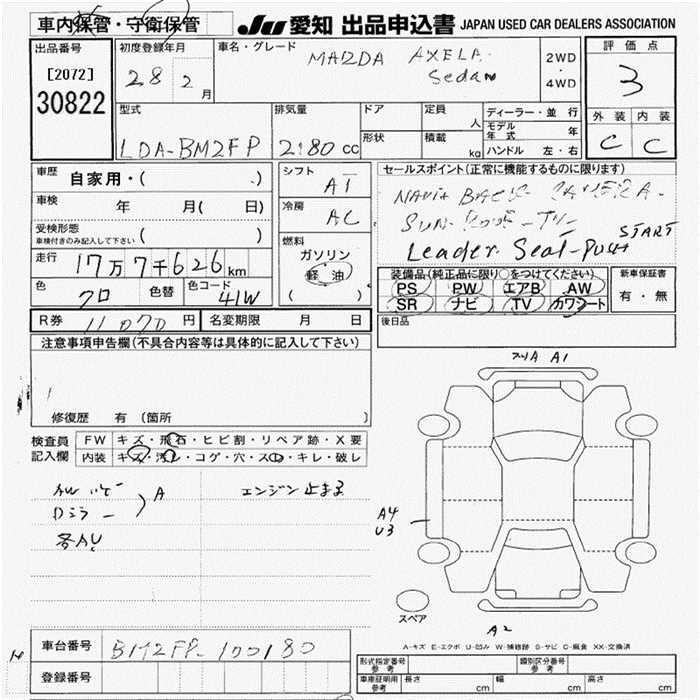 車内保管・守衛保管 JU 愛知 出品申込書 JAPAN USED CAR DEALERS ASSOCIATION
出品番号
[2072]
30822
初度登録年月
28 2月
車名・グレード
MAZDA AXELA
Sedan
2WD
・
4WD
評価点
3
外装 内装
C C
型式
LDA-BM2FP
排気量
2180cc
ドア
形状
定員
人
積載
kg
ディーラー・並行
モデル年式 年
ハンドル 左・右
車歴
自家用・( )
車検
年 月( 日)
受検形態
車検付きのみ記入して下さい ( )
走行 17万7千626km
色 クロ 色替 色コード 41W
シフト
AT
冷房
AC
燃料
ガソリン
軽油
( )
セールスポイント(正常に機能するものに限ります)
NAVi BACK CAMERA-
SUN-ROOF-TV-
Leader Seat-PUSH START
装備品(純正品に限り○をつけてください)
PS PW エアB AW
SR ナビ TV カワシート
新車保証書
有・無
R券 11070円 名変期限 月 日
後日品
注意事項申告欄(不具合内容等は具体的に記入して下さい)
修復歴 有(箇所 )
検査員記入欄
FW キズ・飛石・ヒビ割・リペア跡・X要
内装 キズ・汚レ・コゲ・穴・スレ・キレ・破レ
A
Dミラー
エンジン止まる
A1
A4
U3
スペア
A2
A-キズ E-エクボ U-凹み W-補修跡 S-サビ C-腐食 XX-交換済
車台番号 BM2FP-100180
登録番号
形式指定番号参考 類別区分番号参考
車庫証明用参考 長さ cm 幅 cm 高さ cm